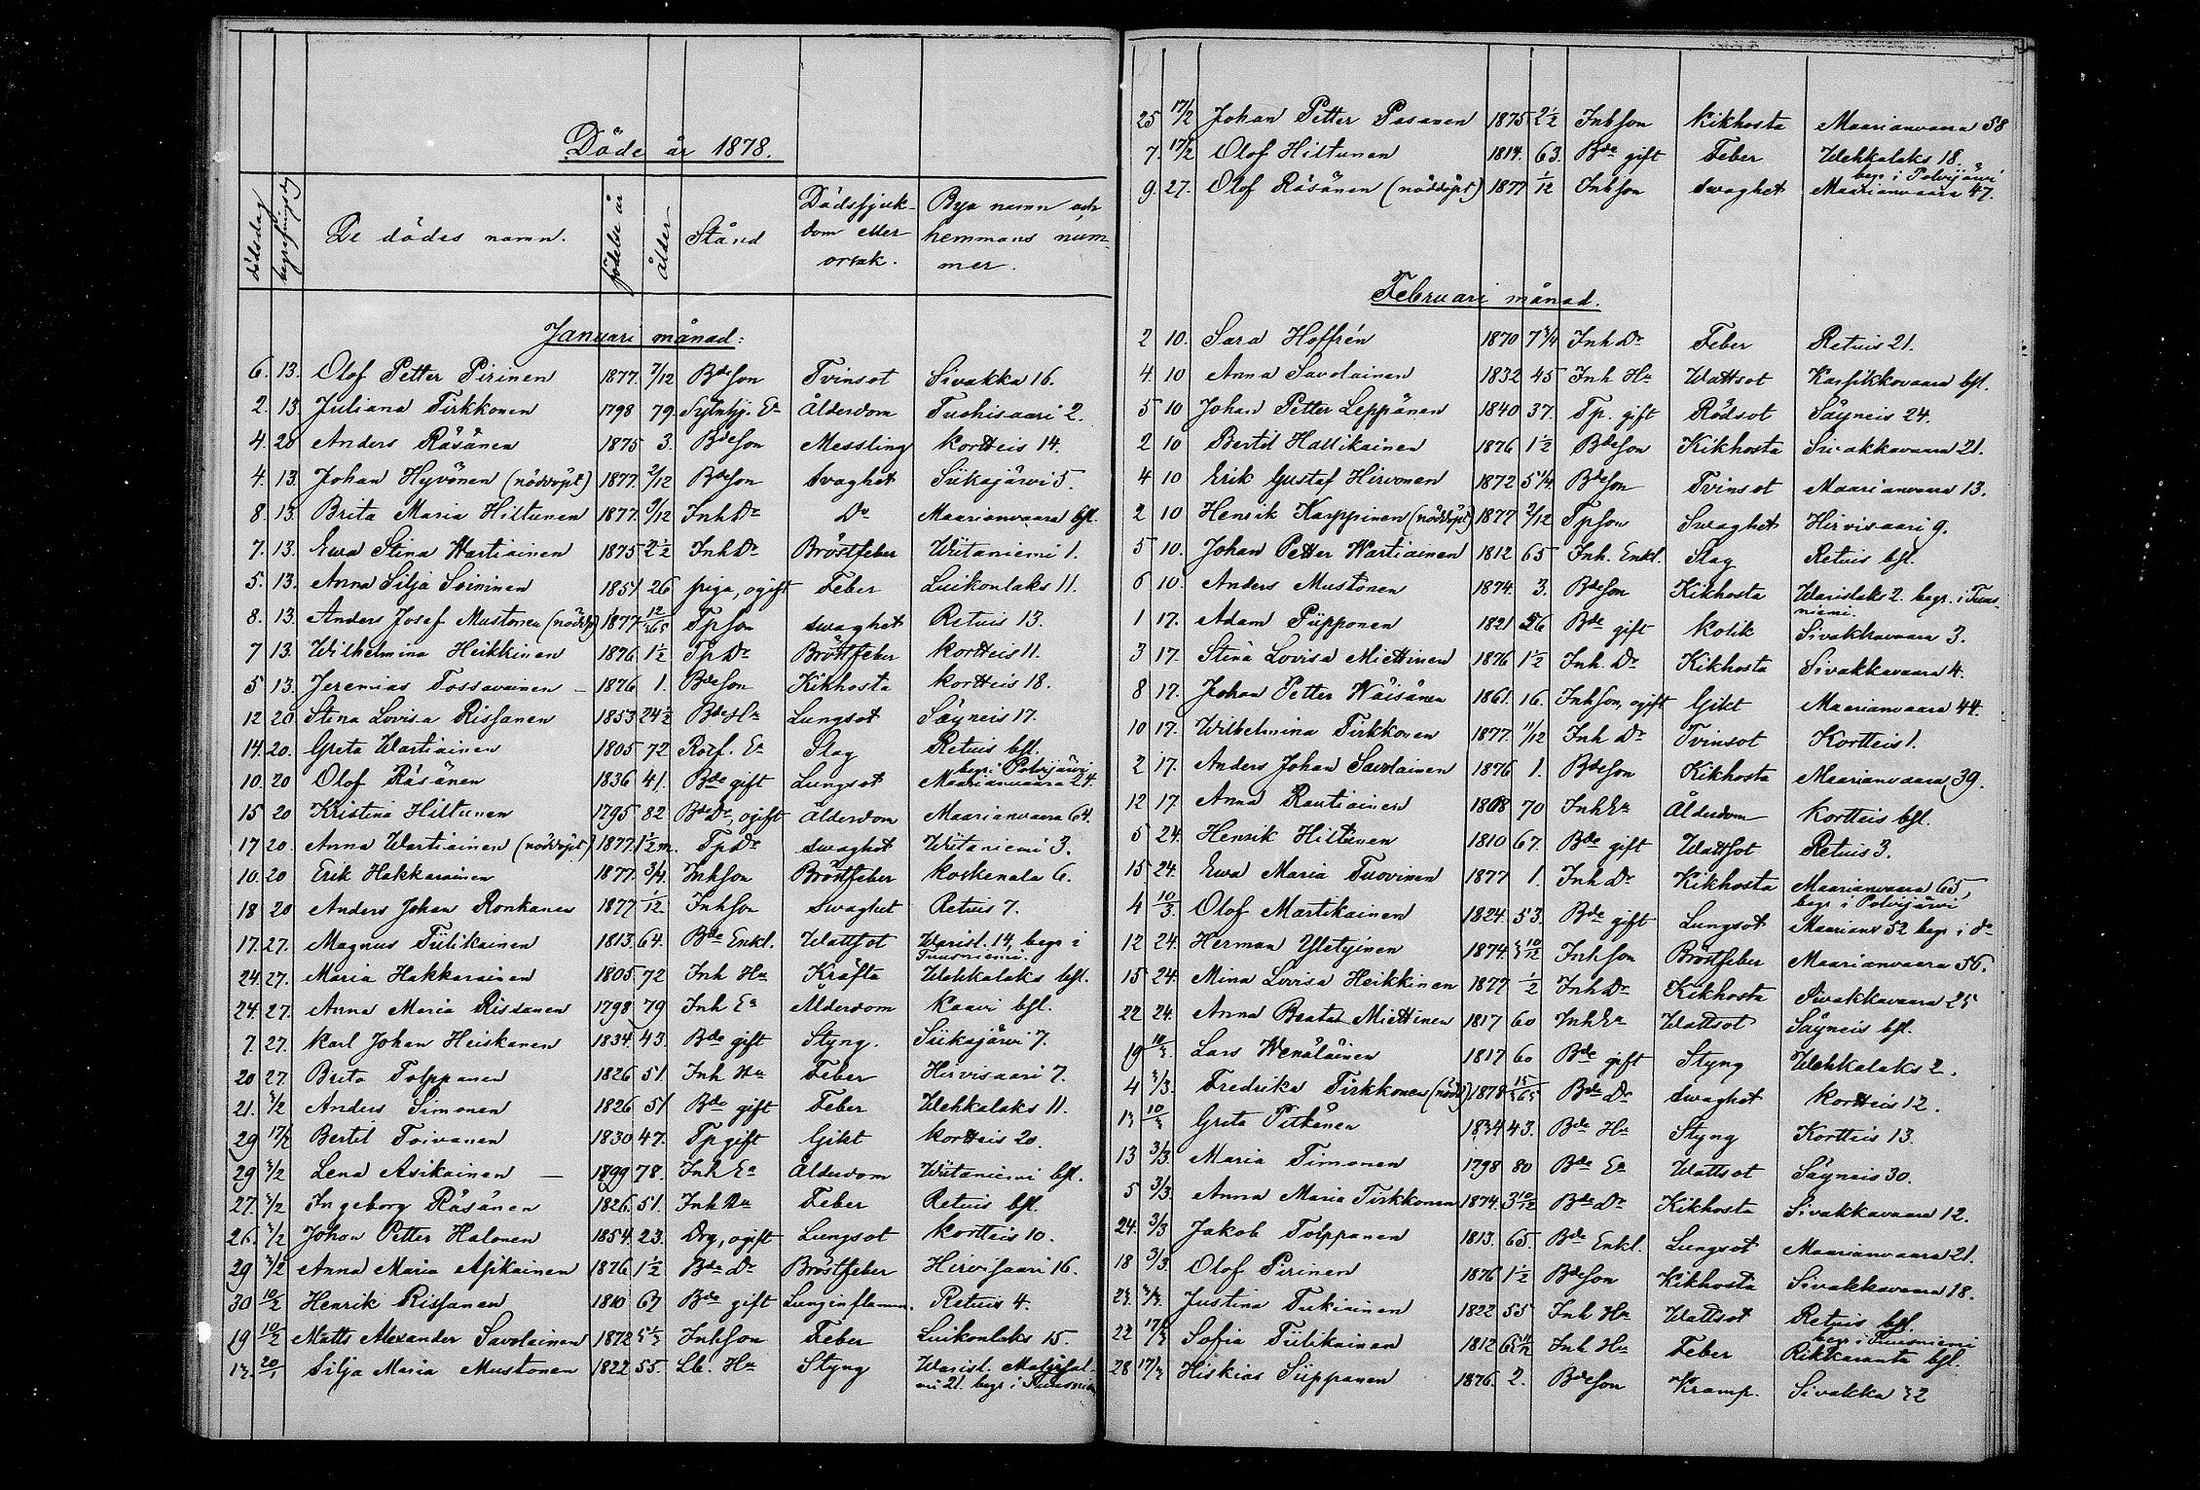 Döde år 1878.
dödsdag begrafningsdag De dödes namn. födelse år ålder Stånd Dödssjuk-dom eller orsak. Bya namn och hemmans num-mer.
Januari månad:
6. 13. Olof Petter Pirinen 1877. 7/12 Bde Son Tvinsot Sivakka 16.
2. 13 Juliana Tirkkonen 1798 79. Sytnhj. Ea Ålderdom Tuohisaari 2.
4. 20 Anders Räsänen 1875 3. Bde Son Messling Kortteis 14.
4. 13. Johan Hyvönen (nöddöpt) 1877. 2/12 Bde Son Svaghet Siikajärvi 5.
8. 13. Brita Maria Hiltunen 1877. 9/12 Inh Dr Do Maarianvaara bfl.
7. 13. Ewa Stina Wartiainen 1875 2 1/2 Inh Dr Bröstfeber Wiitaniemi 1.
5. 13. Anna Silja Soininen 1851 26 piga, ogift Feber Luikonlaks 11.
8. 13. Anders Josef Mustonen (nöddöp) 1877 12/365 Tp Son swaghet Retuis 13.
7 13. Wilhelmina Heikkinen 1876 1 1/2 Tp Dr Bröstfeber Kortteis 11.
5 13. Jeremias Tossavainen — 1876 1. Bde Son Kikhosta Kortteis 18.
12 20 Stina Lovisa Rissanen 1853 24 1/2 Bde Ha Lungsot Säyneis 17.
14. 20. Greta Wartiainen 1805 72 Rotf. Ea Slag Retuis bfl.
10. 20 Olof Räsänen 1836 41. Bde gift Lungsot begr. i Polvijärvi Maarianvaara 24.
15 20 Kristina Hiltunen 1795 82 Bde Dr, ogift Ålderdom Maarianvaara 64.
17 20. Anna Wartiainen (nöddöpt) 1877. 1 1/2 m. Tp Dr swaghet Wiitaniemi 3.
10. 20 Erik Hakkarainen 1877. 3/4 Inh Son Bröstfeber Koskenala 6.
18 20 Anders Johan Ronkanen 1877 1/12 Inh Son Swaghet Retuis 7.
17. 27. Magnus Tiilikainen 1813. 64. Bde Enkl. Wattsot Warisl. 14, begr i Tuusniemi.
24. 27. Maria Hakkarainen 1805 72 Inh Ha Kräfta Wehkalaks bfl.
24. 27. Anna Maria Rissanen 1798 79 Inh Ea Ålderdom Kaavi bfl.
7. 27. Karl Johan Heiskanen 1834. 43. Bde gift Styng. Siikajärvi 7.
20 27. Brita Tolppanen 1826 51. Inh Ha Feber Hirvisaari 7.
21. 3/2 Anders Simonen 1826 51 Bde gift Feber Wehkalaks 11.
29 17/2 Bertil Toivanen 1830 47. Tp gift Gikt Kortteis 20.
29 3/2 Lena Asikainen — 1899 78. Inh Ea Ålderdom Wiitaniemi bfl.
27. 3/2 Ingeborg Räsänen 1826. 51. Inh Ha Feber Retuis bfl.
26. 3/2 Johan Petter Halonen 1854. 23. Drg, ogift Lungsot Kortteis 10.
29 3/2 Anna Maria Asikainen 1876 1 1/2 Bde Dr Bröstfeber Hirvisaari 16.
30 10/2 Henrik Rissanen 1810 67 Bde gift Lunginflamm. Retuis 4.
19 10/2 Matts Alexander Savolainen 1872 5 1/2 Inh Son Feber Luikonlaks 15
13. 20/1 Silja Maria Mustonen 1822 55. Lb. Ha Styng Warisl. 21. begr i Tuusniemi
25 17/2 Johan Petter Pasanen 1875 2 1/2 Inh Son Kikhosta Maarianvaara 58
7. 17/2 Olof Hiltunen 1814. 63. Bde gift Feber Wehkalaks 18.
9 27. Olof Räsänen (nöddöpt) 1877 1/12 Inh Son Swaghet begr. i Polvijärvi Maarianvaara 47.
Februari månad.
2 10. Sara Hoffrén 1870 7 3/4 Inh Dr Feber Retuis 21.
4. 10 Anna Savolainen 1832 45 Inh Ha Wattsot Karsikkovaara bfl.
5 10 Johan Petter Leppänen 1840 37. Tp. gift Rödsot Säyneis 24.
2 10 Bertil Hallikainen 1876 1 1/2 Bde Son Kikhosta Sivakkavaara 21.
4 10 Erik Gustaf Hirvonen 1872 5 1/4 Bde Son Tvinsot Maarianvaara 13.
2 10 Henrik Karppinen (nöddöpt) 1877 2/12 Tp Son Swaghet Hirvisaari 9.
5 10. Johan Petter Wartiainen 1812 65 Inh. Enkl. Slag Retuis bfl.
6 10. Anders Mustonen 1874. 3. Bde Son Kikhosta Warislaks 2. begr. i Tuus-niemi.
1 17. Adam Piipponen 1821 56 Bde gift Kolik Sivakkavaara 3.
3 17. Stina Lovisa Miettinen 1876 1 1/2 Inh. Dr Kikhosta Sivakkavaara 4.
8 17. Johan Petter Wäisänen 1861. 16. Inh Son, ogift Gikt Maarianvaara 44.
10 17. Wilhelmina Tirkkonen 1877. 11/12 Inh Dr Tvinsot Kortteis 1.
2 17. Anders Johan Savolainen 1876 1. Bde Son Kikhosta Maarianvaara 39.
12 17 Anna Rautiainen 1808 70 Inh Ea Ålderdom Kortteis bfl.
5 24. Henrik Hiltunen 1810 67. Bde gift Wattsot Retuis 3.
15 24. Ewa Maria Tuovinen 1877 1. Inh Dr Kikhosta Maarianvaara 65, begr i Polvijärvi
4 10/3. Olof Martikainen 1824. 53. Bde gift Lungsot Maarianv 52 begr i do
12 24. Herman 1874. 3 10/12 Inh Son Bröstfeber Maarianvaara 56.
15 24. Mina Lovisa Heikkinen 1877 1/2 Inh Dr Kikhosta Sivakkavaara 25
22 24. Anna Beata Miettinen 1817 60 Inh Ea Wattsot Säyneis bfl.
19 10/3 Lars Wenäläinen 1817 60 Bde gift Styng Wehkalaks 2.
4 3/3. Fredrika Tirkkonen (nödd) 1878 15/365 Bde Dr Swaghet Kortteis 12.
13 10/3 Greta Pitkänen 1834 43. Bde Ha Styng Kortteis 13.
13 3/3. Maria Timonen 1798 80 Bde Ea Wattsot Säyneis 30.
5 3/3. Anna Maria Tirkkonen 1874. 3 10/12 Bde Dr Kikhosta Sivakkavaara 12.
24. 3/3 Jakob Tolppanen 1813. 65. Bde Enkl. Lungsot Maarianvaara 21.
18 3/3. Olof Pirinen 1876 1 1/2 Bde Son Kikhosta Sivakkavaara 18.
23. 3/3. Justina Tukiainen 1822 55 Inh Ha Wattsot Retuis bfl.
22 17/3 Sofia Tiilikainen 1812 Inh Ha Feber begr i Tuusniemi Rikkaranta bfl.
28 17/3 Hiskias Siippanen 1876. 2. Bde Son Kramp. Sivakka 32